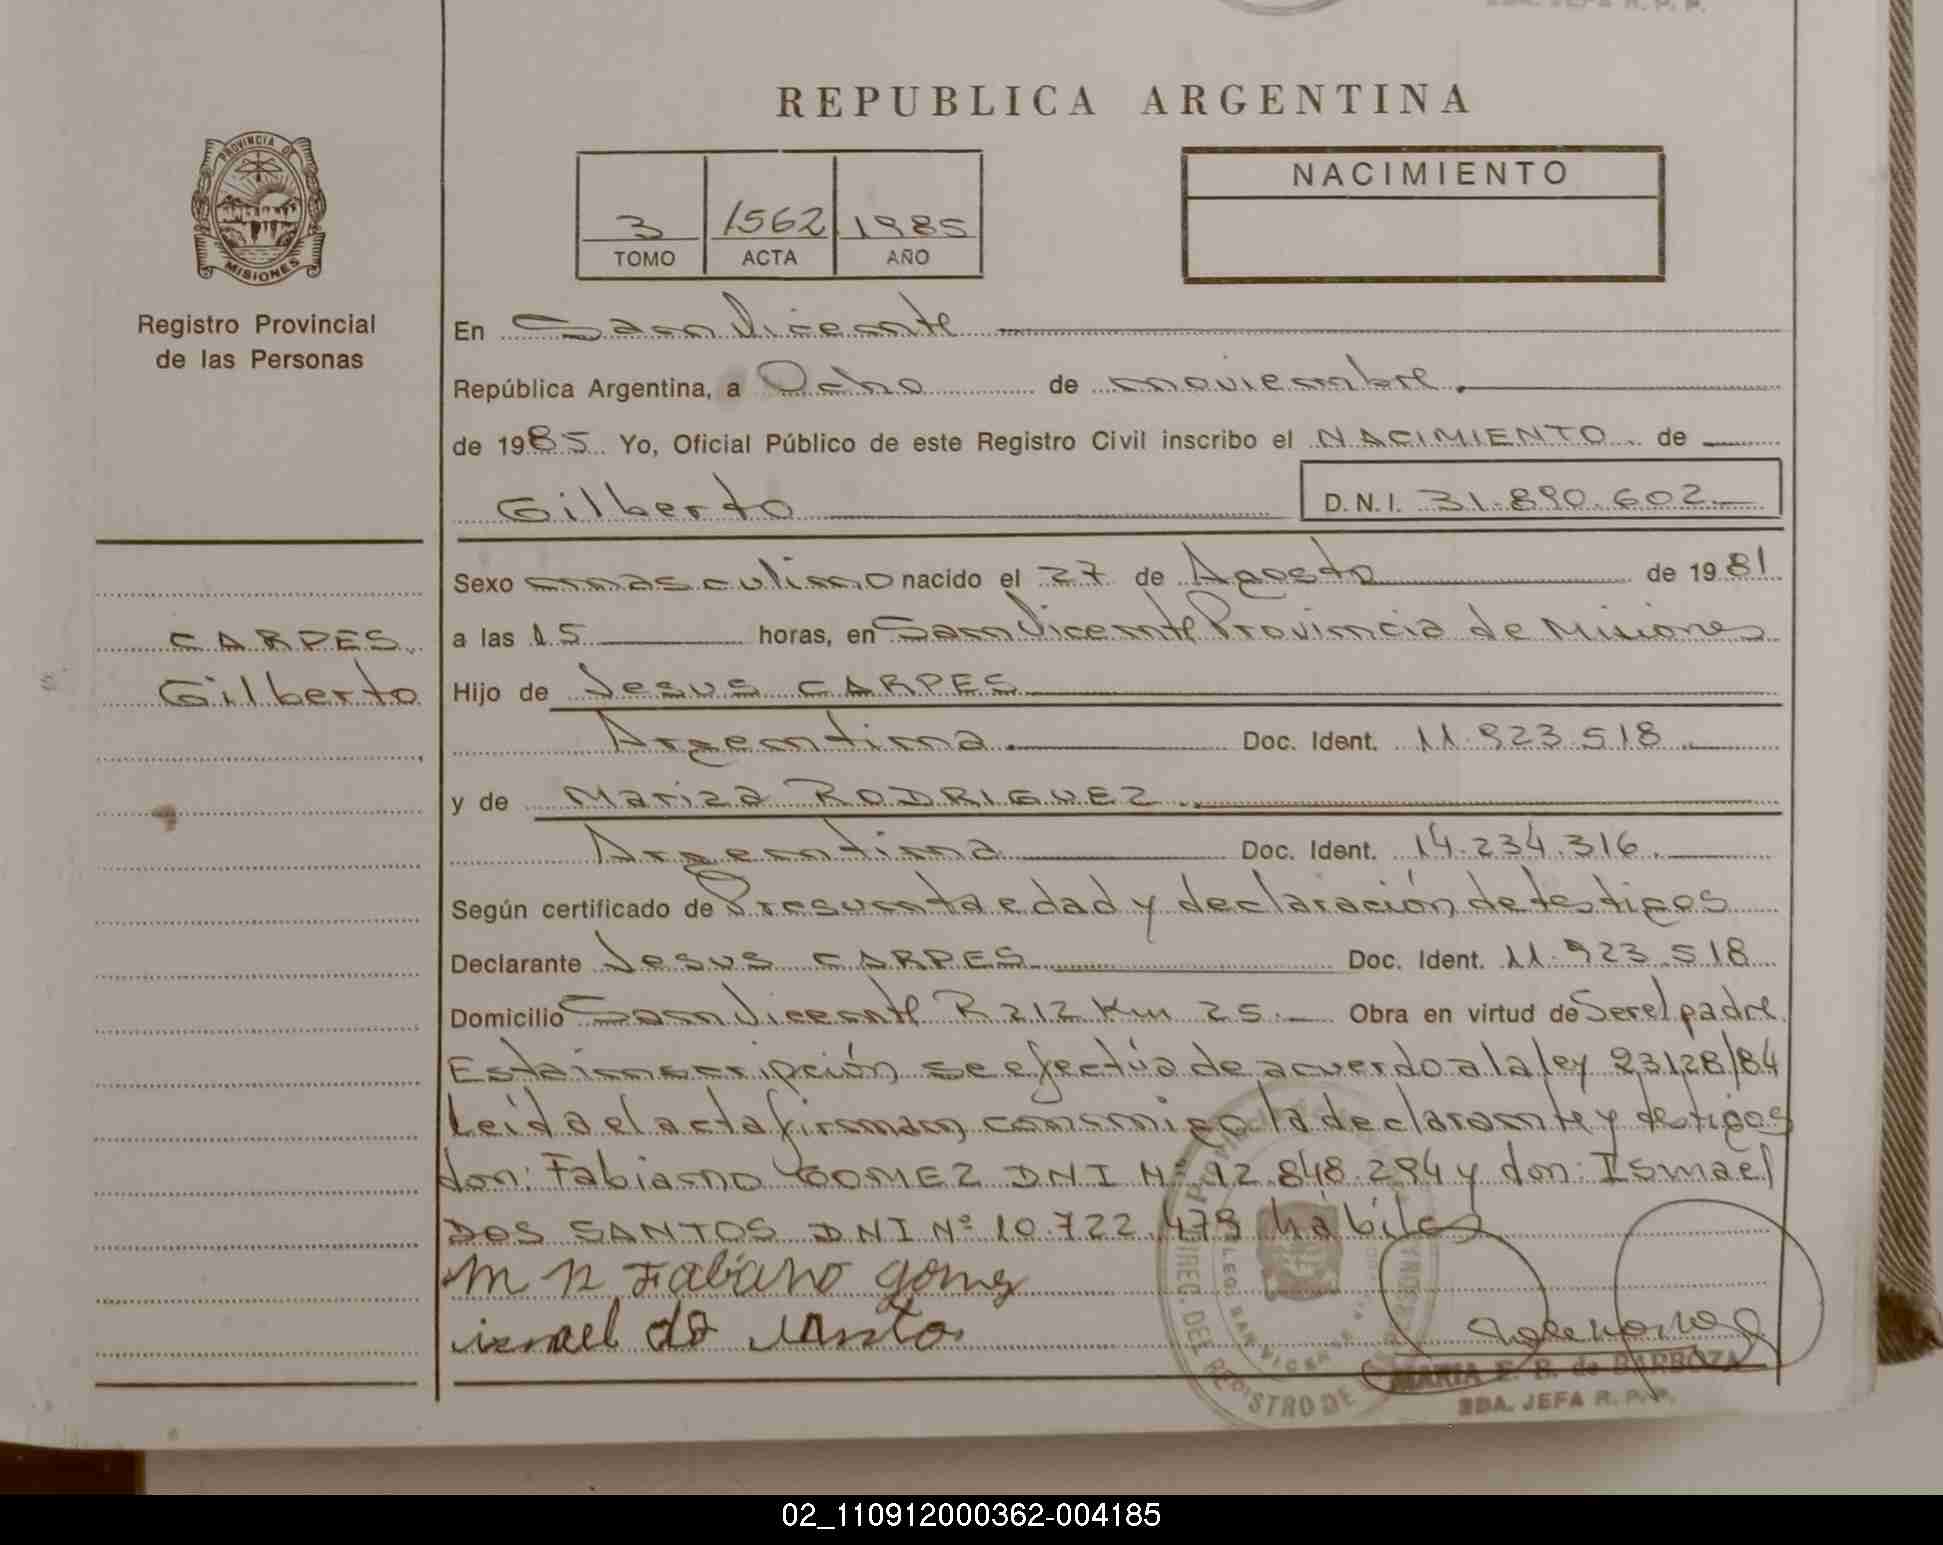 REPUBLICA ARGENTINA
PROVINCIA DE
MISIONES
Registro Provincial
de las Personas
3 1562 1985
TOMO ACTA AÑO
NACIMIENTO
En San Vicente
República Argentina, a Ocho de noviembre.
de 1985. Yo, Oficial Público de este Registro Civil inscribo el NACIMIENTO de
Gilberto D.N.I. 31.890.602
CARPES
Gilberto
Sexo masculino nacido el 27 de Agosto de 1981
a las 15 horas, en San Vicente Provincia de Misiones
Hijo de Jesus CARPES
Argentina Doc. Ident. 11.923.518
y de Mariza RODRIGUEZ.
Argentina Doc. Ident. 14.234.316.
Según certificado de Presunta edad y declaración de testigos
Declarante Jesus CARPES Doc. Ident. 11.923.518
Domicilio San Vicente R 212 Km 25. Obra en virtud de Ser el padre
Esta inscripción se efectúa de acuerdo a la ley 23128/84
Leída el acta firman conmigo la declarante y testigos
don: Fabiano GOMEZ DNI Nº 92.848.294 y don: Ismael
DOS SANTOS DNI Nº 10.722.479 hábiles
Fabiano gomez
ismael do santo
MARIA E. B. de BARBOZA
2DA. JEFA R. P. P.
02_110912000362-004185